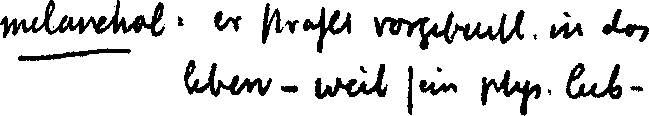 melanchol. er strahlt vorgebeult. in das
leben – weil sein phys. leib-